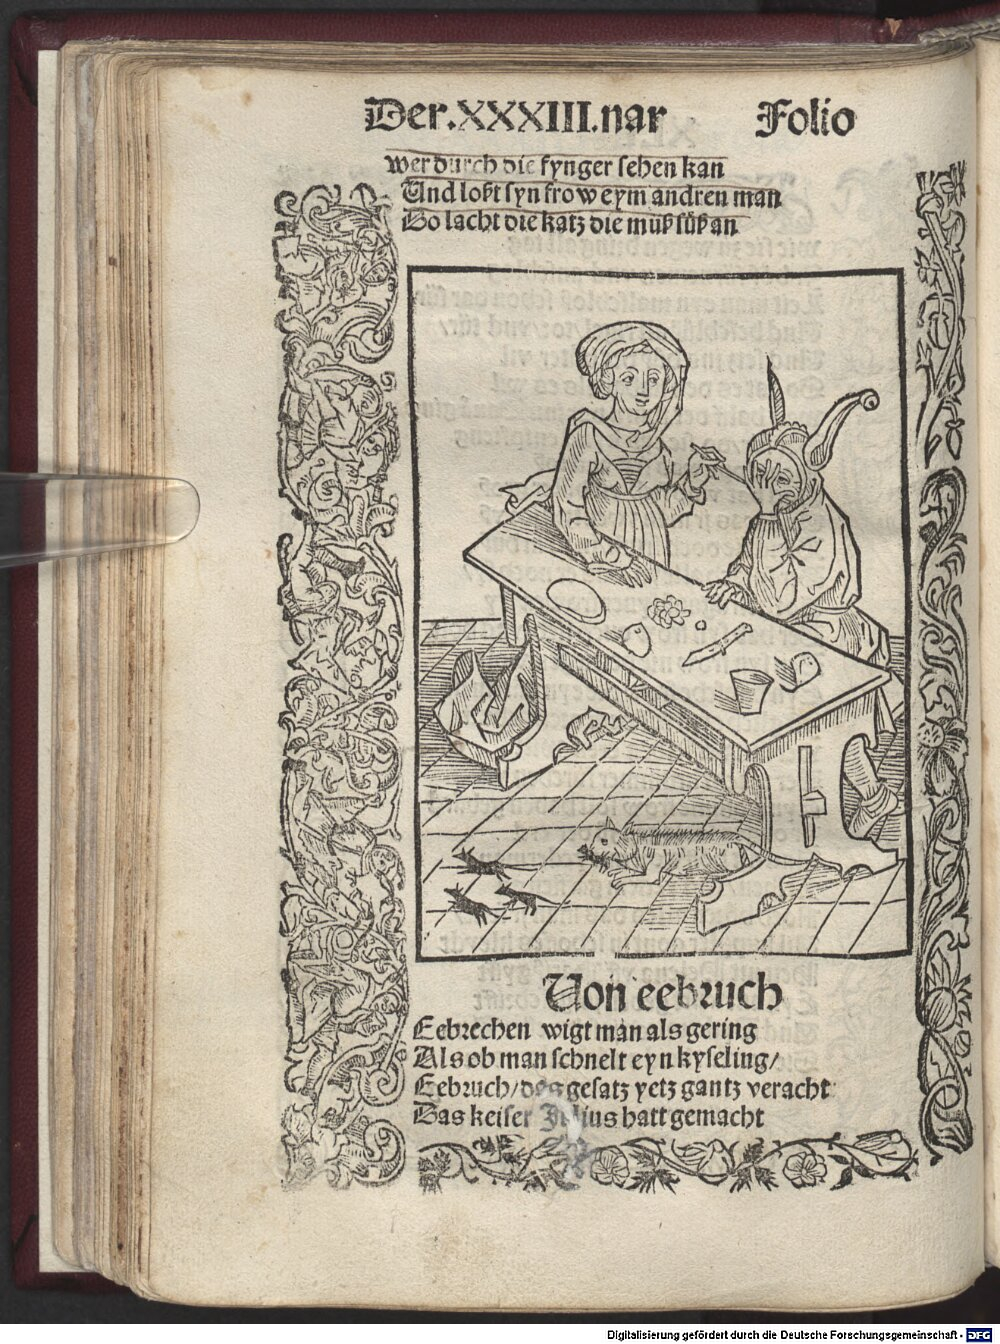 Der.XXXIII.nar Folio
wer durch die fynger sehen kan
Und loßt syn frow eym andren man
So lacht die katz die müß süß an
Von eebruch
Eebrechen wigt man als gering
Als ob man schnelt eyn kyseling/
Eebruch/ des gesatz yetz gantz veracht
Das keiser Julius hatt gemacht
Digitalisierung gefördert durch die Deutsche Forschungsgemeinschaft - DFG